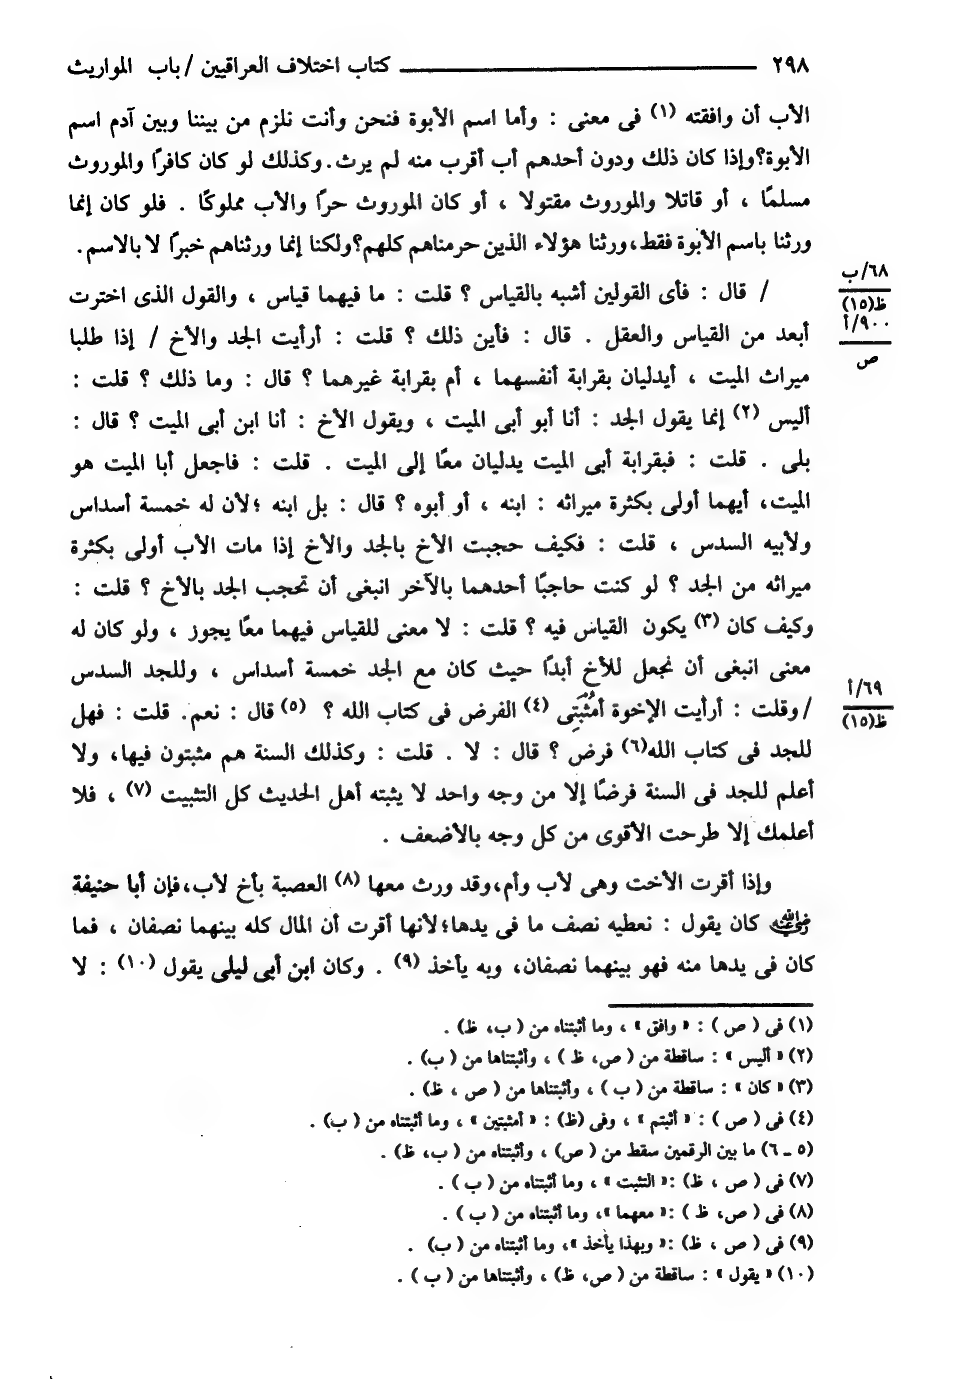 ٢٩٨ ــــــــــــــــــــــــــــــ كتاب اختلاف العراقيين / باب المواريث
الأب أن وافقته (١) فى معنى : وأما اسم الأبوة فنحن وأنت نلزم من بيننا وبين آدم اسم
الأبوة؟وإذا كان ذلك ودون أحدهم أب أقرب منه لم يرث.وكذلك لو كان كافرًا والموروث
مسلمًا ، أو قاتلا والموروث مقتولا ، أو كان الموروث حرًا والأب مملوكًا . فلو كان إنما
ورثنا باسم الأبوة فقط،ورثنا هؤلاء الذين حرمناهم كلهم؟ولكنا إنما ورثناهم خبرًا لا بالاسم.
٦٨/ب
ظ(١٥)
٩٠٠/أ
ص
/ قال : فأى القولين أشبه بالقياس ؟ قلت : ما فيهما قياس ، والقول الذى اخترت
أبعد من القياس والعقل . قال : فأين ذلك ؟ قلت : أرأيت الجد والأخ / إذا طلبا
ميراث الميت ، أيدليان بقرابة أنفسهما ، أم بقرابة غيرهما ؟ قال : وما ذلك ؟ قلت :
أليس (٢) إنما يقول الجد : أنا أبو أبى الميت ، ويقول الأخ : أنا ابن أبى الميت ؟ قال :
بلى . قلت : فبقرابة أبى الميت يدليان معًا إلى الميت . قلت : فاجعل أبا الميت هو
الميت، أيهما أولى بكثرة ميراثه : ابنه ، أو أبوه ؟ قال : بل ابنه ؛لأن له خمسة أسداس
ولأبيه السدس ، قلت : فكيف حجبت الأخ بالجد والأخ إذا مات الأب أولى بكثرة
ميراثه من الجد ؟ لو كنت حاجبًا أحدهما بالآخر انبغى أن تحجب الجد بالأخ ؟ قلت :
وكيف كان (٣) يكون القياس فيه ؟ قلت : لا معنى للقياس فيهما معًا يجوز ، ولو كان له
معنى انبغى أن نجعل للأخ أبدًا حيث كان مع الجد خمسة أسداس ، وللجد السدس
٦٩/أ
ظ(١٥)
/ وقلت : أرأيت الإخوة أمُثْبَتِى (٤) الفرض فى كتاب الله ؟ (٥) قال : نعم. قلت : فهل
للجد فى كتاب الله(٦) فرض ؟ قال : لا . قلت : وكذلك السنة هم مثبتون فيها، ولا
أعلم للجد فى السنة فرضًا إلا من وجه واحد لا يثبته أهل الحديث كل التثبيت (٧) ، فلا
أعلمك إلا طرحت الأقوى من كل وجه بالأضعف .
وإذا أقرت الأخت وهى لأب وأم،وقد ورث معها (٨) العصبة بأخ لأب،فإن أبا حنيفة
رضي الله عنه كان يقول : نعطيه نصف ما فى يدها؛لأنها أقرت أن المال كله بينهما نصفان ، فما
كان فى يدها منه فهو بينهما نصفان، وبه يأخذ (٩) . وكان ابن أبى ليلى يقول (١٠) : لا
(١) فى ( ص ) : « وافق » ، وما أثبتناه من ( ب، ظ) .
(٢) « أليس » : ساقطة من ( ص، ظ ) ، وأثبتناها من ( ب) .
(٣) « كان » : ساقطة من ( ب ) ، وأثبتناها من ( ص ، ظ) .
(٤) فى ( ص ) : « أثبتم » ، وفى (ظ) : « أمثبتين » ، وما أثبتناه من ( ب) .
(٥ ـ ٦) ما بين الرقمين سقط من ( ص) ، وأثبتناه من ( ب، ظ) .
(٧) فى ( ص ، ظ) :« التثبت » ، وما أثبتناه من ( ب ) .
(٨) فى ( ص، ظ ) :« معهما »، وما أثبتناه من ( ب ) .
(٩) فى ( ص ، ظ) :« وبهذا يأخذ »، وما أثبتناه من ( ب) .
(١٠) « يقول » : ساقطة من ( ص، ظ) ، وأثبتناها من ( ب ) .